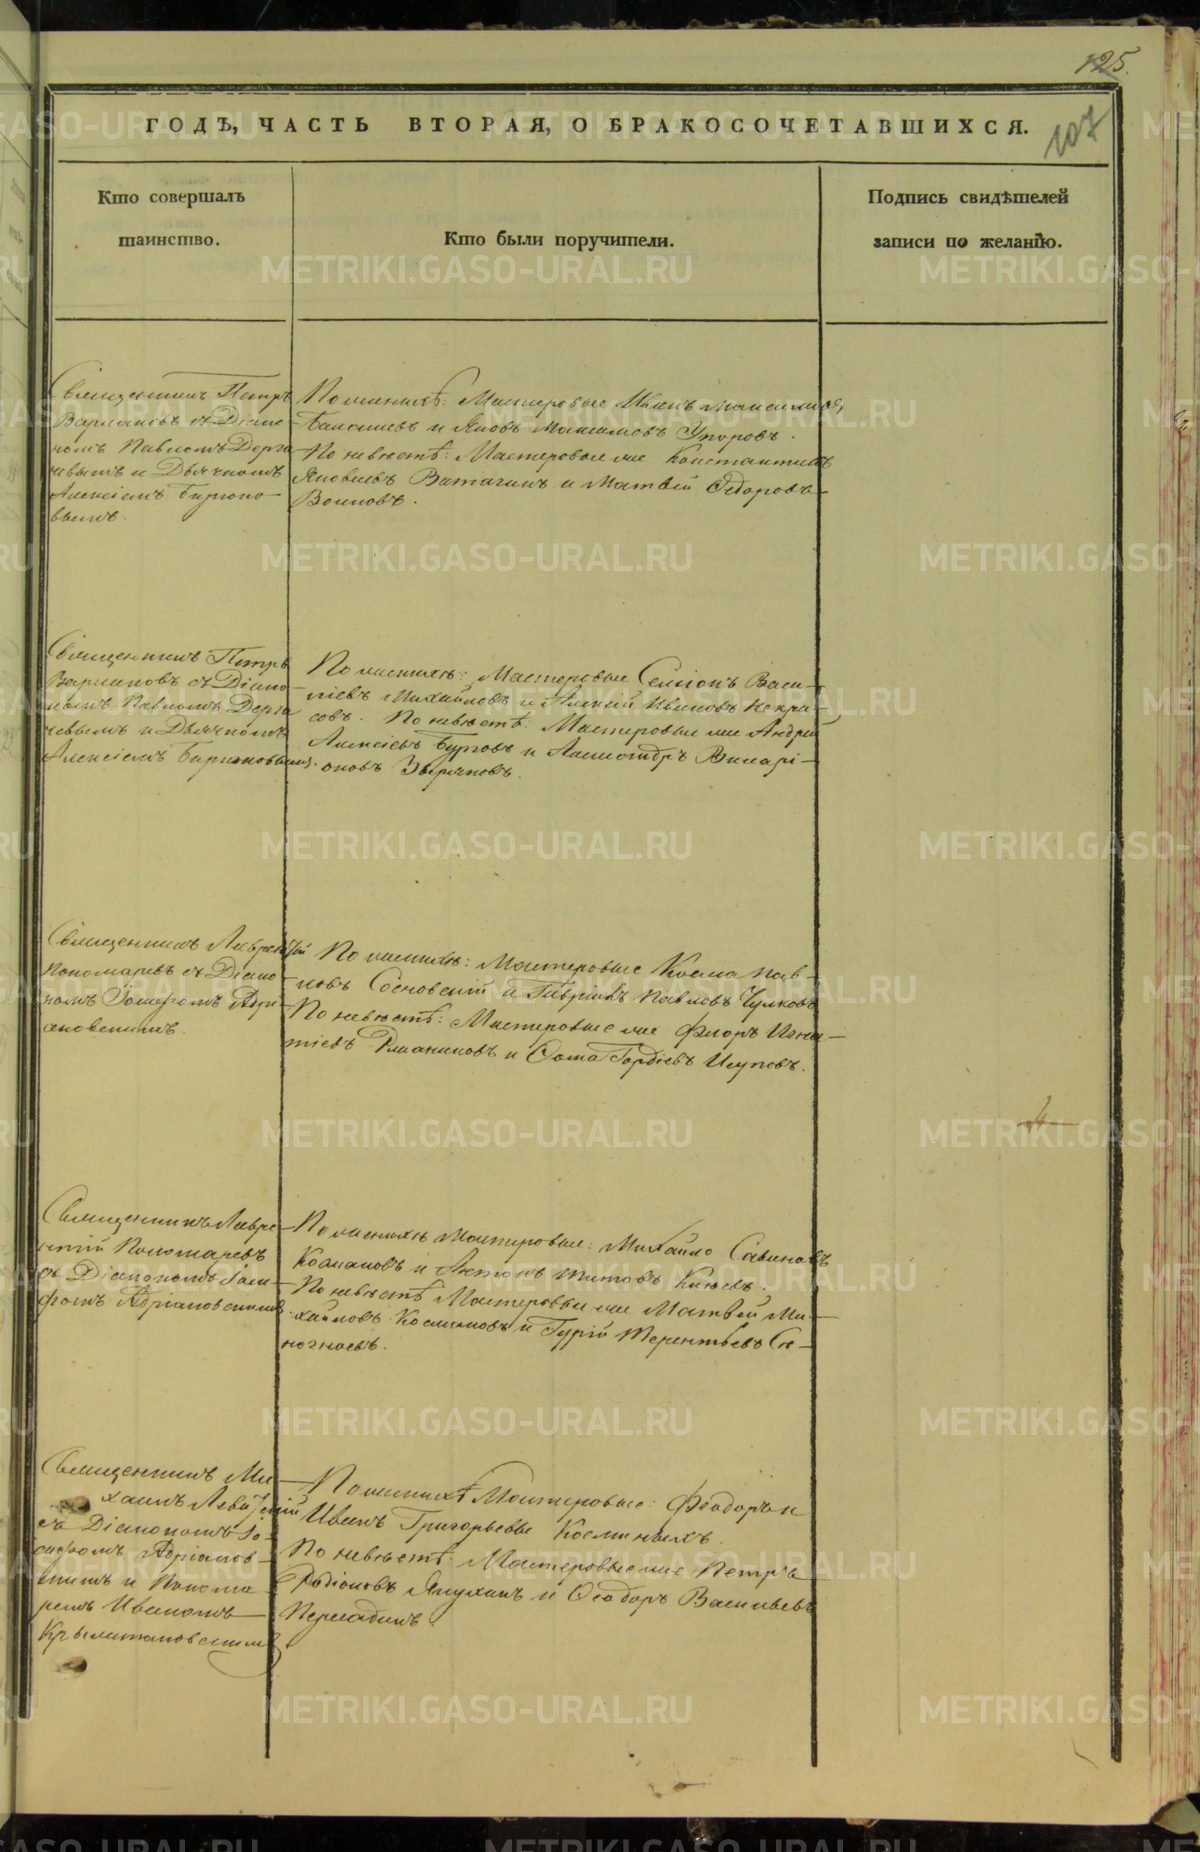 125.
107
ГОДЪ, ЧАСТЬ ВТОРАЯ, О БРАКОСОЧЕТАВШИХСЯ.
Кто совершалъ
таинство.
Кто были поручители.
Подпись свидѣтелей
записи по желанію.
Священникъ Петръ
Варлаковъ съ Діако
номъ Павломъ Дерга
чевымъ и Дьячкомъ
Алексіемъ Бирюко
вымъ.
По женихѣ: Мастеровые Иванъ
и Яковъ Максимовъ Упоровъ.
По невѣстѣ: Мастеровые же Константинъ
Яковлевъ Ватагинъ и Матвѣй Ѳедоровъ
Воиновъ.
Священникъ Петръ
Варлаковъ съ Діако
номъ Павломъ Дерга
чевымъ и Дьячкомъ
Алексіемъ Бирюковымъ.
По женихѣ: Мастеровые Семіонъ Васи-
ліевъ Михайловъ и Алексій Ивановъ Некра-
совъ. По невѣстѣ: Мастеровые же Андрей
Алексіевъ и Александръ Викарі-
оновъ Зыряновъ.
Священникъ Лаврентій
Пономаревъ съ Діако
номъ Іоасафомъ Адрі-
ановскимъ.
По женихѣ: Мастеровые Косма Пав-
ловъ Сосновскій и Гавріилъ Павловъ Чулковъ
По невѣстѣ: Мастеровые же Флоръ Игна-
тіевъ и Ѳома Гордѣевъ Исуповъ.
Священникъ Лавре
нтій Пономаревъ
съ Діакономъ Іоаса-
фомъ Адріановскимъ
По женихѣ Мастеровые: Михайло Савиновъ
и Антонъ Титовъ Князевъ.
По невѣстѣ Мастеровые же Матвѣй Ми-
хайловъ и Гурій Терентьевъ Се-
Священникъ Ми-
хаилъ Левитскій
съ Діакономъ Іо-
асафомъ Адріанов-
скимъ и Понома
ремъ Иваномъ
По женихѣ Мастеровые: Ѳеодоръ и
Иванъ Григорьевы Косминыхъ.
По невѣстѣ: Мастеровые же Петръ
Родіоновъ и Ѳеодоръ Васильевъ
METRIKI.GASO-URAL.RU